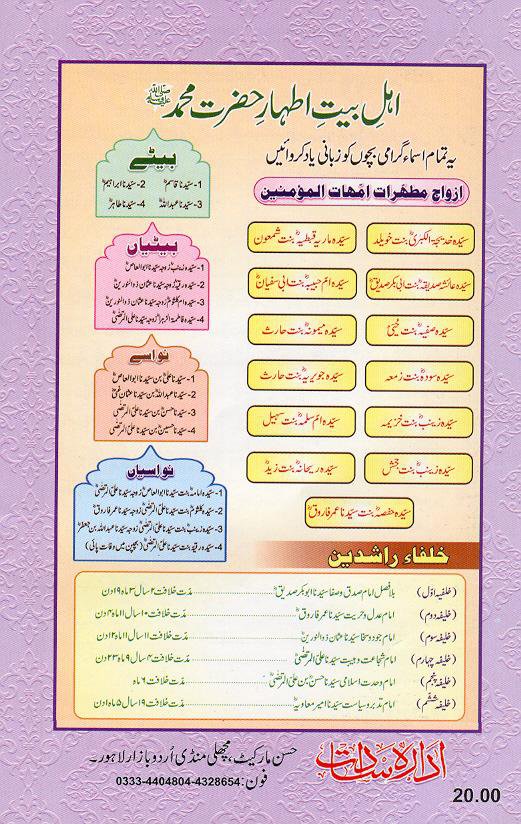 اہلِ بیتِ اطہارِ حضرت محمد ﷺ
یہ تمام اسماء گرامی بچوں کو زبانی یاد کروائیں
ازواج مطہرات امہات المؤمنین
سیدہ خدیجۃ الکبریٰؓ بنت خویلد
سیدہ ماریہ قبطیہؓ بنت شمعون
سیدہ عائشہ صدیقہؓ بنت ابی بکر صدیقؓ
سیدہ ام حبیبہؓ بنت ابی سفیانؓ
سیدہ صفیہؓ بنت حیی
سیدہ میمونہؓ بنت حارث
سیدہ سودہؓ بنت زمعہ
سیدہ جویریہؓ بنت حارث
سیدہ زینبؓ بنت خزیمہ
سیدہ ام سلمہؓ بنت سہیل
سیدہ زینبؓ بنت جحش
سیدہ ریحانہؓ بنت زید
سیدہ حفصہؓ بنت سیدنا عمر فاروقؓ
بیٹے
1- سیدنا قاسمؓ 2- سیدنا ابراہیمؓ
3- سیدنا عبداللہؓ 4- سیدنا طاہرؓ
بیٹیاں
1- سیدہ زینبؓ زوجہ سیدنا ابوالعاصؓ
2- سیدہ رقیہؓ زوجہ سیدنا عثمان ذوالنورینؓ
3- سیدہ ام کلثومؓ زوجہ سیدنا عثمان ذوالنورینؓ
4- سیدہ فاطمۃ الزہراؓ زوجہ سیدنا علی المرتضیٰؓ
نواسے
1- سیدنا علیؓ بن سیدنا ابوالعاصؓ
2- سیدنا عبداللہؓ بن سیدنا عثمان غنیؓ
3- سیدنا حسنؓ بن سیدنا علی المرتضیٰؓ
4- سیدنا حسینؓ بن سیدنا علی المرتضیٰؓ
نواسیاں
1- سیدہ امامہؓ بنت سیدنا ابوالعاصؓ زوجہ سیدنا علی المرتضیٰؓ
2- سیدہ ام کلثومؓ بنت سیدنا علی المرتضیٰؓ زوجہ سیدنا عمر فاروقؓ
3- سیدہ زینبؓ بنت سیدنا علی المرتضیٰؓ زوجہ سیدنا عبداللہ بن جعفرؓ
4- سیدہ رقیہؓ بنت سیدنا علی المرتضیٰؓ (بچپن میں وفات پائی)
خلفاء راشدین
(خلیفہ اوّل) بلافصل امام صدق وصفا سیدنا ابوبکر صدیقؓ مدت خلافت ۲ سال ۳ ماہ ۹ دن
(خلیفہ دوم) امام عدل وحریت سیدنا عمر فاروقؓ مدت خلافت ۱۰ سال ۶ ماہ ۴ دن
(خلیفہ سوم) امام جود وسخا سیدنا عثمان ذوالنورینؓ مدت خلافت ۱۱ سال ۱۱ ماہ ۱۲ دن
(خلیفہ چہارم) امام شجاعت وہیبت سیدنا علی المرتضیٰؓ مدت خلافت ۴ سال ۹ ماہ ۲۳ دن
(خلیفہ پنجم) امام وحدت اسلامی سیدنا حسنؓ بن علی المرتضیٰؓ مدت خلافت ۶ ماہ
(خلیفہ ششم) امام تدبر وسیاست سیدنا امیر معاویہؓ مدت خلافت ۱۹ سال ۵ ماہ ۶ دن
ادارہ سادات
حسن مارکیٹ، مچھلی منڈی اُردو بازار لاہور۔
فون: 0333-4404804-4328654
20.00